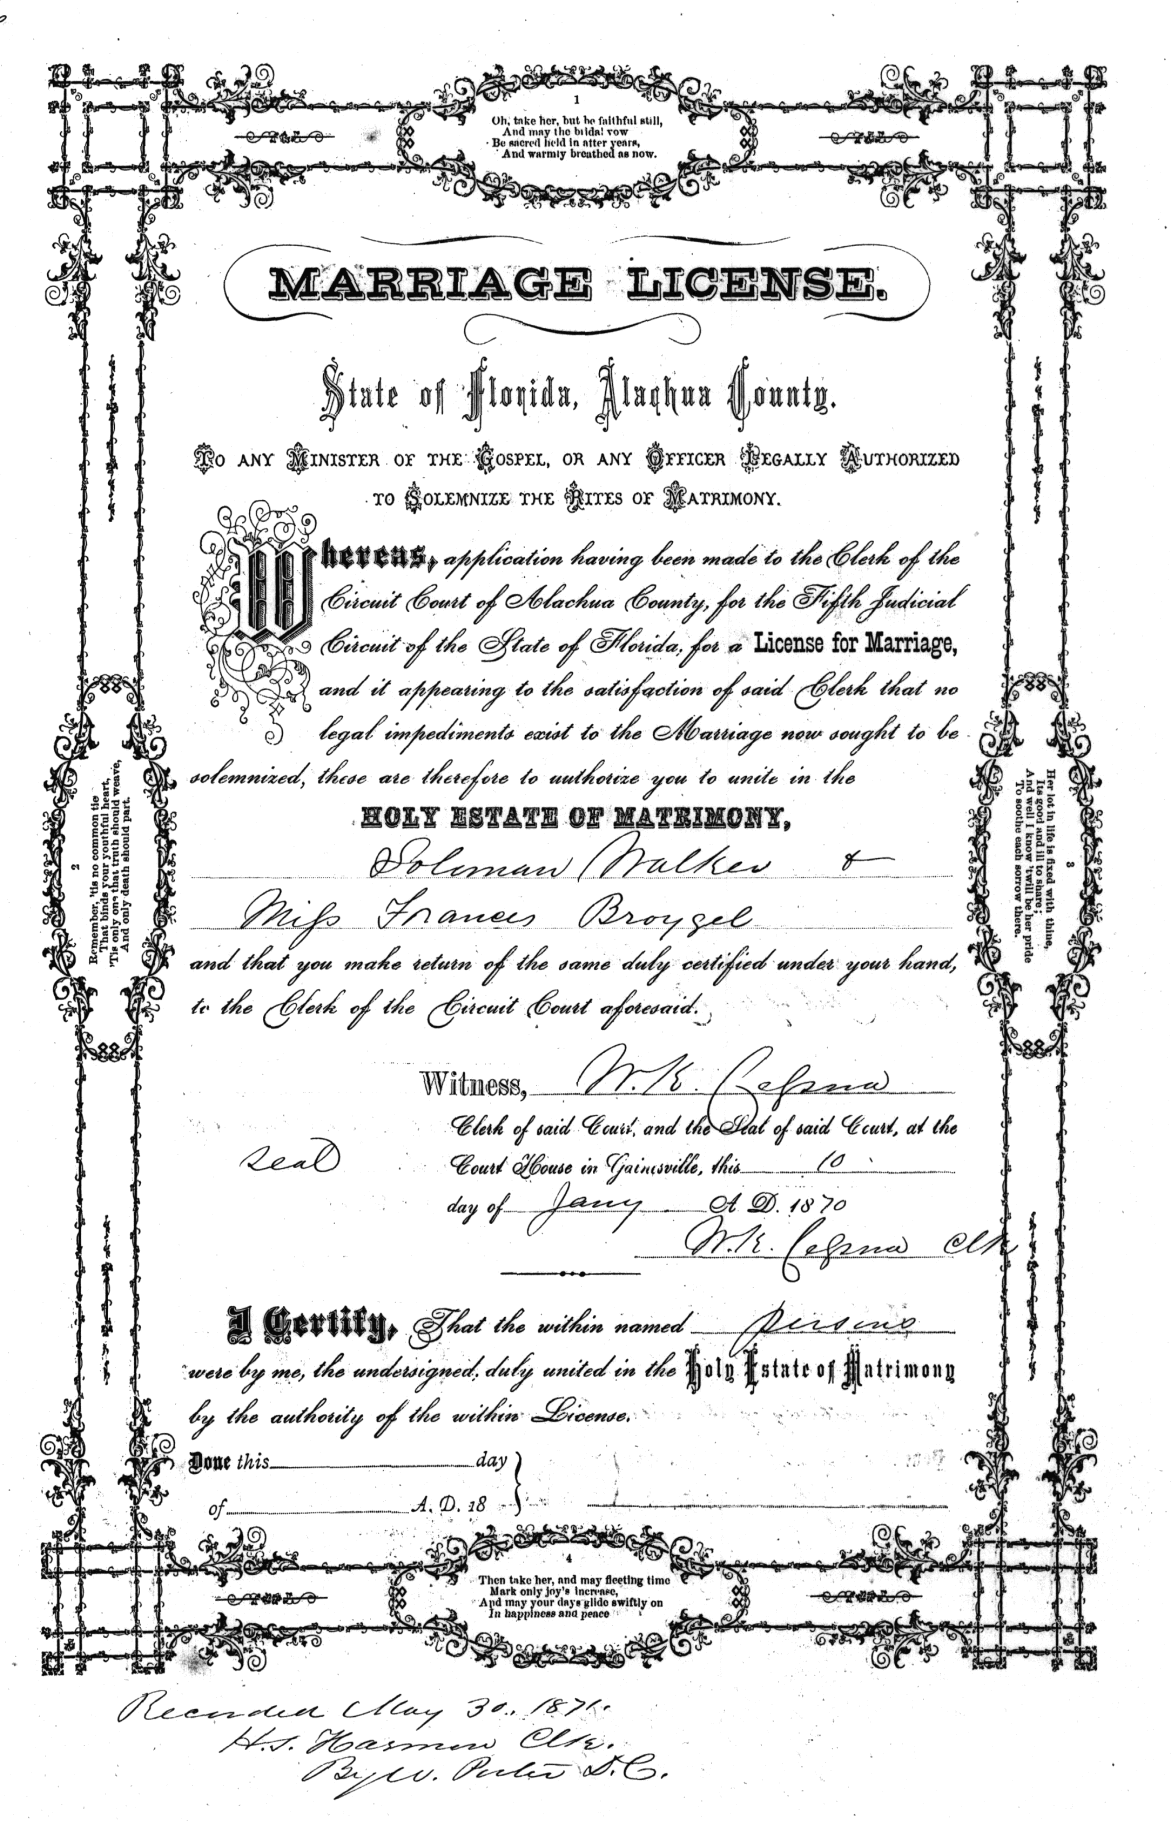 1
Oh, take her, but be faithful still,
And may the bridal vow
Be sacred held in after years,
And warmly breathed as now.
MARRIAGE LICENSE.
State of Florida, Alachua County.
TO ANY MINISTER OF THE GOSPEL, OR ANY OFFICER LEGALLY AUTHORIZED
TO SOLEMNIZE THE RITES OF MATRIMONY.
Whereas, application having been made to the Clerk of the
Circuit Court of Alachua County, for the Fifth Judicial
Circuit of the State of Florida, for a License for Marriage,
and it appearing to the satisfaction of said Clerk that no
legal impediments exist to the Marriage now sought to be
solemnized, these are therefore to authorize you to unite in the
HOLY ESTATE OF MATRIMONY,
Soloman Walker &
Miss Frances Broygel
and that you make return of the same duly certified under your hand,
to the Clerk of the Circuit Court aforesaid.
2
Remember, 'tis no common tie
That binds your youthful heart,
'Tis only one that truth should weave,
And only death should part.
3
Her lot in life is fixed with thine,
Its good and ill to share;
And well I know 'twill be her pride
To soothe each sorrow there.
Witness, W. K. Cessna
Clerk of said Court, and the Seal of said Court, at the
seal
Court House in Gainesville, this 10
day of Jany A. D. 1870
W. K. Cessna Clk
I Certify, That the within named persons
were by me, the undersigned, duly united in the Holy Estate of Matrimony
by the authority of the within License.
Done this day
of A. D. 18
4
Then take her, and may fleeting time
Mark only joy's increase,
And may your days glide swiftly on
In happiness and peace
Recorded May 30. 1871.
H. S. Harmon Clk.
By W. Porter D. C.